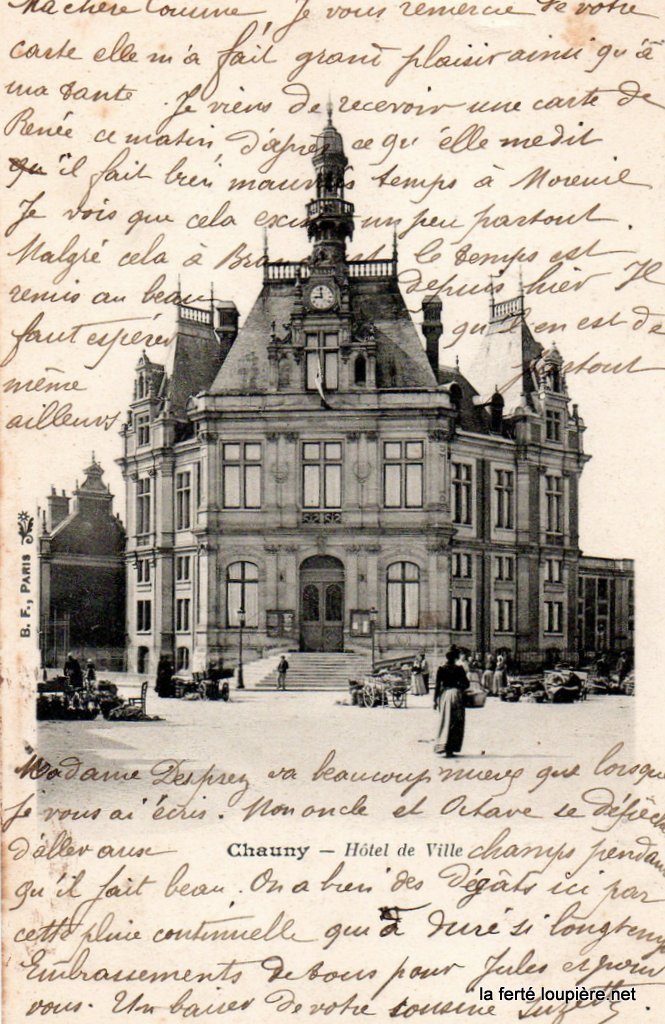 Ma chère Cousine Je vous remercie de votre
carte elle m'a fait grand plaisir ainsi qu'à
ma tante. Je viens de recevoir une carte de
Renée ce matin d'après ce qu'elle me dit
qu'il fait bien mauvais temps à Moreuil
Je vois que cela exis un peu partout.
Malgré cela à le temps est
remis au beau depuis hier Il
faut espérer qu'il en est de
même partout
ailleurs
B. F., PARIS
Madame Desprez va beaucoup mieux que lorsque
Je vous ai écris. Mon oncle et Octave se dépêch
d'aller aux champs pendant
Chauny — Hôtel de Ville
qu'il fait beau. On a bien des dégâts ici par
cette pluie continuelle qui a duré si longtemps
Embrassements de tous pour Jules et pour
vous. Un baiser de votre cousine Suzette
la ferté loupière.net